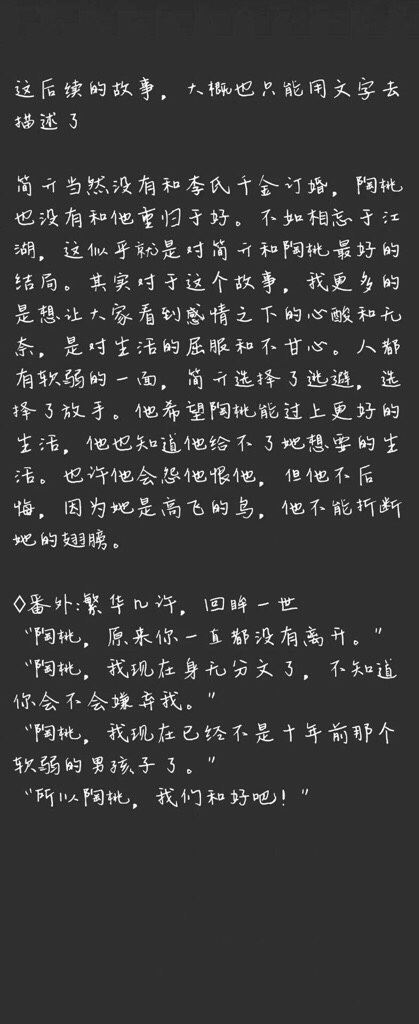 这后续的故事，大概也只能用文字去
描述了
简亓当然没有和李氏千金订婚，陶桃
也没有和他重归于好。不如相忘于江
湖，这似乎就是对简亓和陶桃最好的
结局。其实对于这个故事，我更多的
是想让大家看到感情之下的心酸和无
奈，是对生活的屈服和不甘心。人都
有软弱的一面，简亓选择了逃避，选
择了放手。他希望陶桃能过上更好的
生活，他也知道他给不了她想要的生
活。也许他会怨他恨他，但他不后
悔，因为她是高飞的鸟，他不能折断
她的翅膀。
◊番外:繁华几许，回眸一世
“陶桃，原来你一直都没有离开。”
“陶桃，我现在身无分文了，不知道
你会不会嫌弃我。”
“陶桃，我现在已经不是十年前那个
软弱的男孩子了。”
“所以陶桃，我们和好吧！”